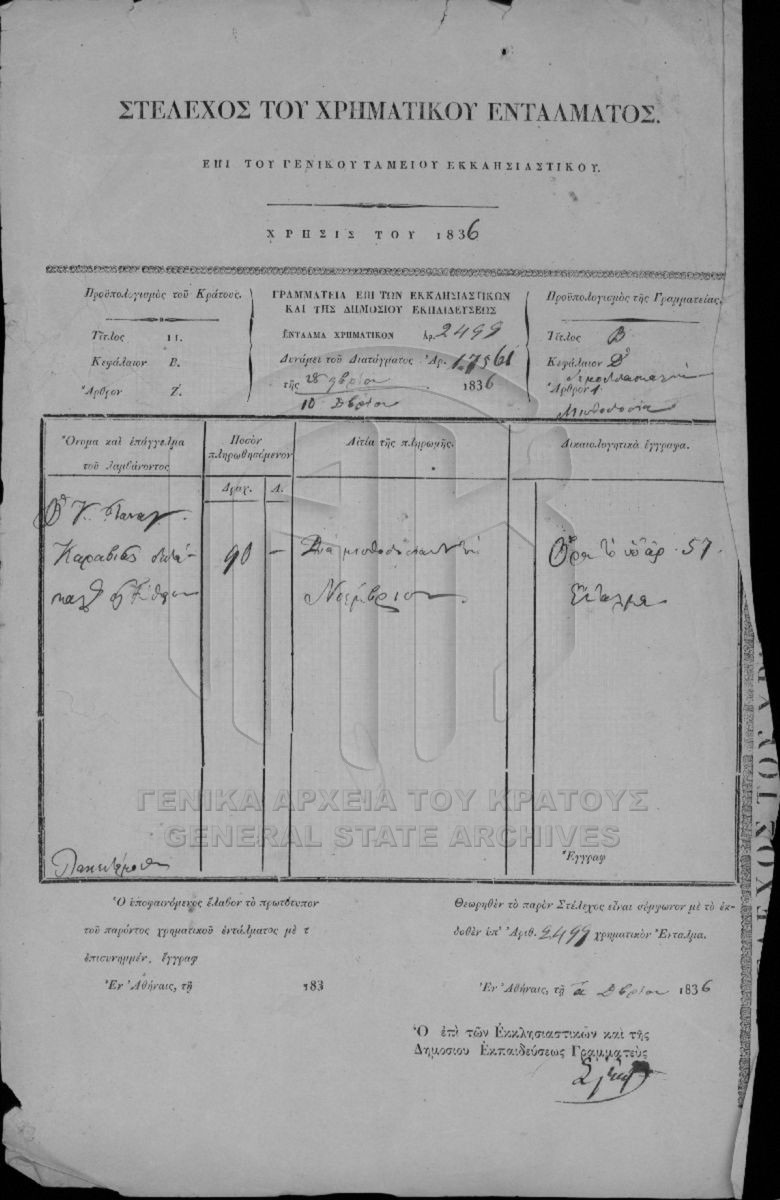 ΣΤΕΛΕΧΟΣ ΤΟΥ ΧΡΗΜΑΤΙΚΟΥ ΕΝΤΑΛΜΑΤΟΣ.
ΕΠΙ ΤΟΥ ΓΕΝΙΚΟΥ ΤΑΜΕΙΟΥ ΕΚΚΛΗΣΙΑΣΤΙΚΟΥ.
ΧΡΗΣΙΣ ΤΟΥ 1836
Προϋπολογισμὸς τοῦ Κράτους.
Τίτλος II.
Κεφάλαιον Β.
Ἄρθρον 7.
ΓΡΑΜΜΑΤΕΙΑ ΕΠΙ ΤΩΝ ΕΚΚΛΗΣΙΑΣΤΙΚΩΝ
ΚΑΙ ΤΗΣ ΔΗΜΟΣΙΟΥ ΕΚΠΑΙΔΕΥΣΕΩΣ
ΕΝΤΑΛΜΑ ΧΡΗΜΑΤΙΚΟΝ Ἀρ. 2499
Δυνάμει τοῦ Διατάγματος Ἀρ. 17561
τῆς 1836
10 Δβρίου
Προϋπολογισμὸς τῆς Γραμματείας.
Τίτλος Β
Κεφάλαιον Δ
Ἄρθρον
Μισθοδοσία
Ὄνομα καὶ ἐπάγγελμα
τοῦ λαμβάνοντος
Ποσὸν
πληρωθησόμενον
Δραχ. Λ.
Αἰτία τῆς πληρωμῆς.
Δικαιολογητικὰ ἔγγραφα.
90 —
Νοέμβριον.
Ὅρα τὸ ὑπ' ἀρ. 57.
Ἔνταλμα
Ἔγγραφ
Ὁ ὑποφαινόμενος ἔλαβον τὸ πρωτότυπον
τοῦ παρόντος χρηματικοῦ ἐντάλματος μὲ τ
ἐπισυνημμέν. ἔγγραφ
Ἐν Ἀθήναις, τῇ 183
Θεωρηθὲν τὸ παρὸν Στέλεχος εἶναι σύμφωνον μὲ τὸ ἐκ-
δοθὲν ὑπ' Ἀριθ. 2499 χρηματικὸν Ἔνταλμα.
Ἐν Ἀθήναις, τῇ Δβρίου 1836
Ὁ ἐπὶ τῶν Ἐκκλησιαστικῶν καὶ τῆς
Δημοσίου Ἐκπαιδεύσεως Γραμματεὺς
ΓΕΝΙΚΑ ΑΡΧΕΙΑ ΤΟΥ ΚΡΑΤΟΥΣ
GENERAL STATE ARCHIVES